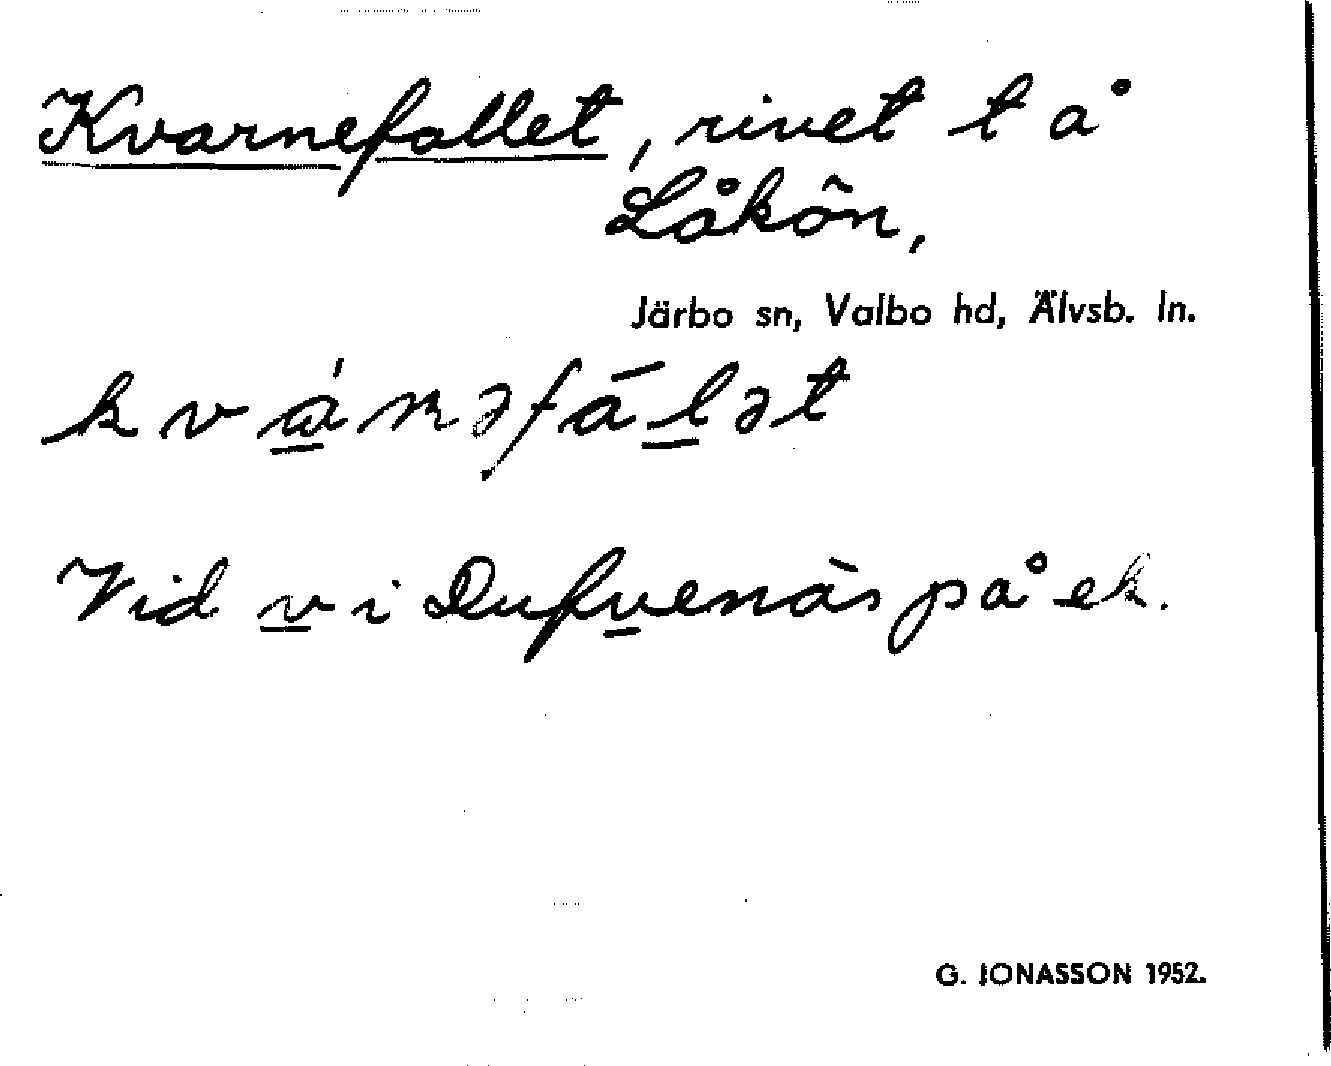 Kvarnefallet, rivet t å
Låkön,
Järbo sn, Valbo hd, Älvsb. ln.
kvánəfāḷət
Vid v i Dufvenäs på ek.
G. JONASSON 1952.